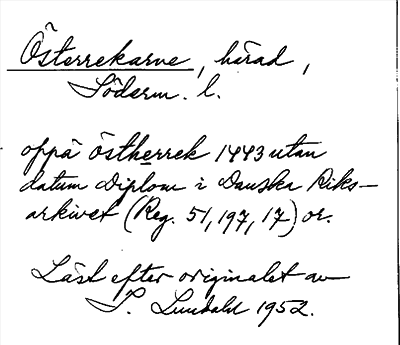 Österrekarne, härad,
Söderm. l.
oppå östherrek 1443 utan
datum Diplom i Danska Riks-
arkivet (Reg. 51, 197, 17) or.
Läst efter originalet av
S. Lundahl 1952.